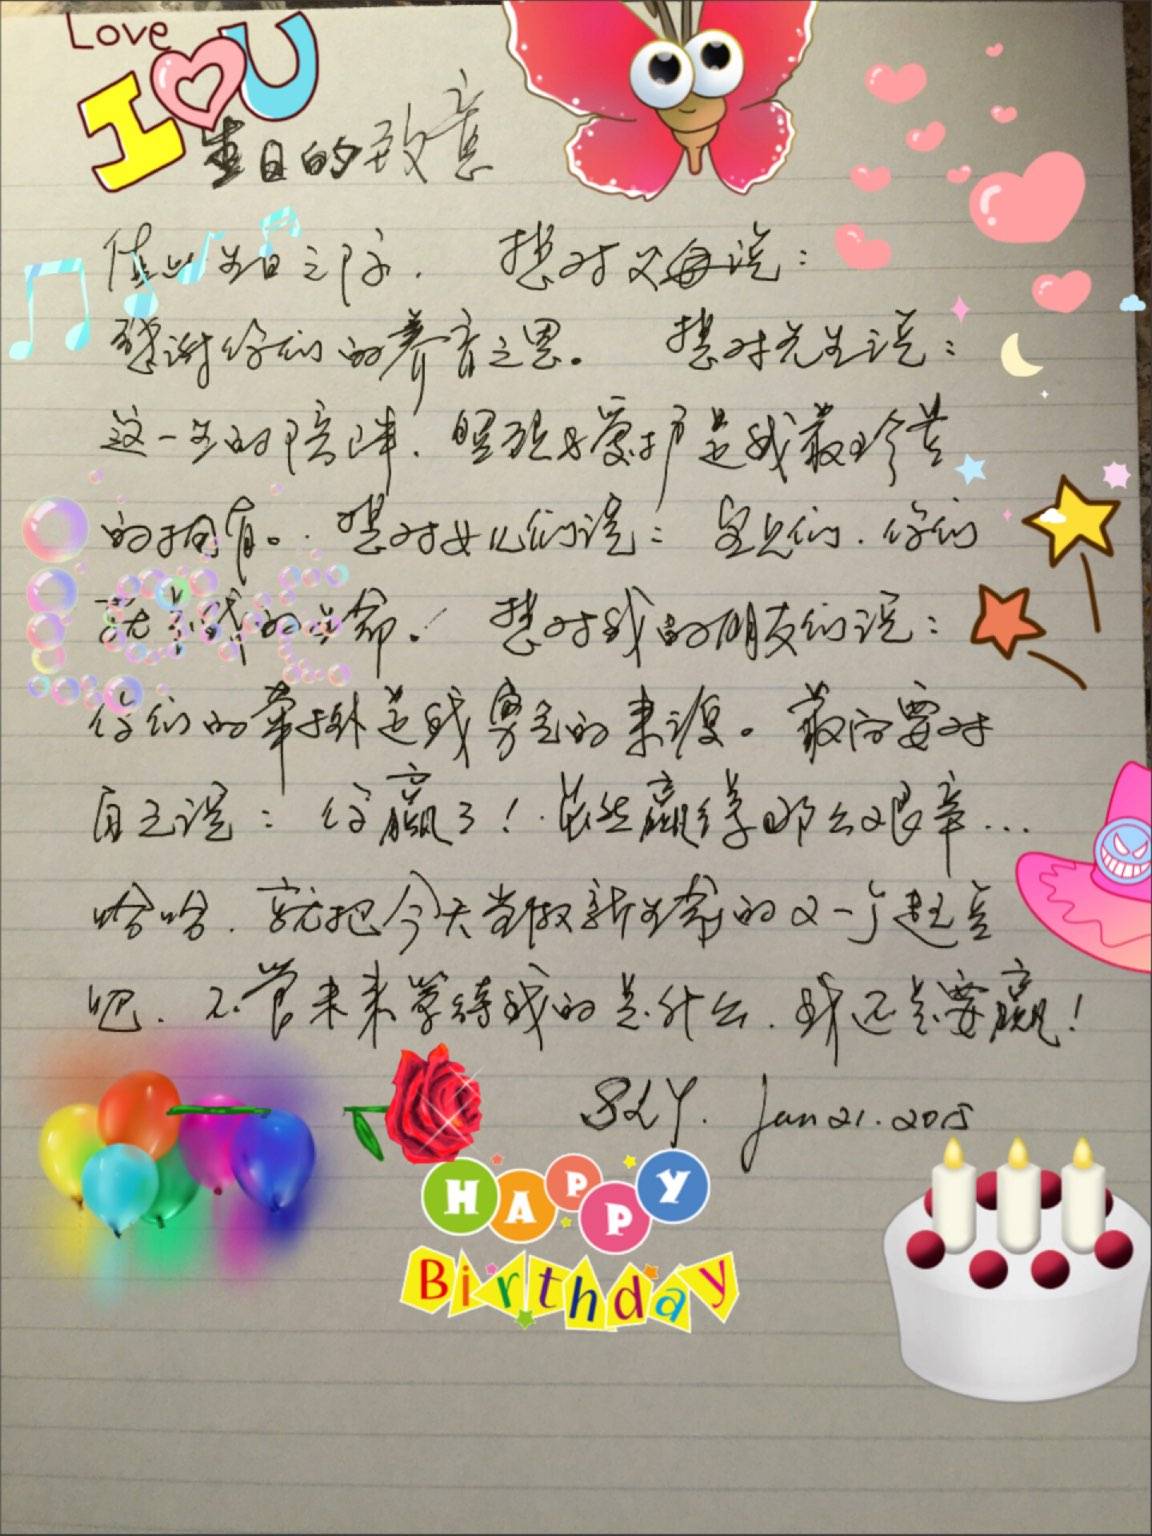 Love
I U
生日的致意
值此生日之际,想对父母说:
感谢你们的养育之恩。想对先生说:
这一生的陪伴,照顾与爱护是我最珍贵
的拥有。想对女儿们说:宝贝们,你们
就是我的生命。想对我的朋友们说:
你们的牵挂是我勇气的来源。最后要对
自己说:你赢了!虽然赢得那么艰辛...
哈哈,就把今天当做新生命的又一个起点
吧,不管未来等待我的是什么,我还是要赢!
SLY. Jan 21. 2015
HAPPY
Birthday